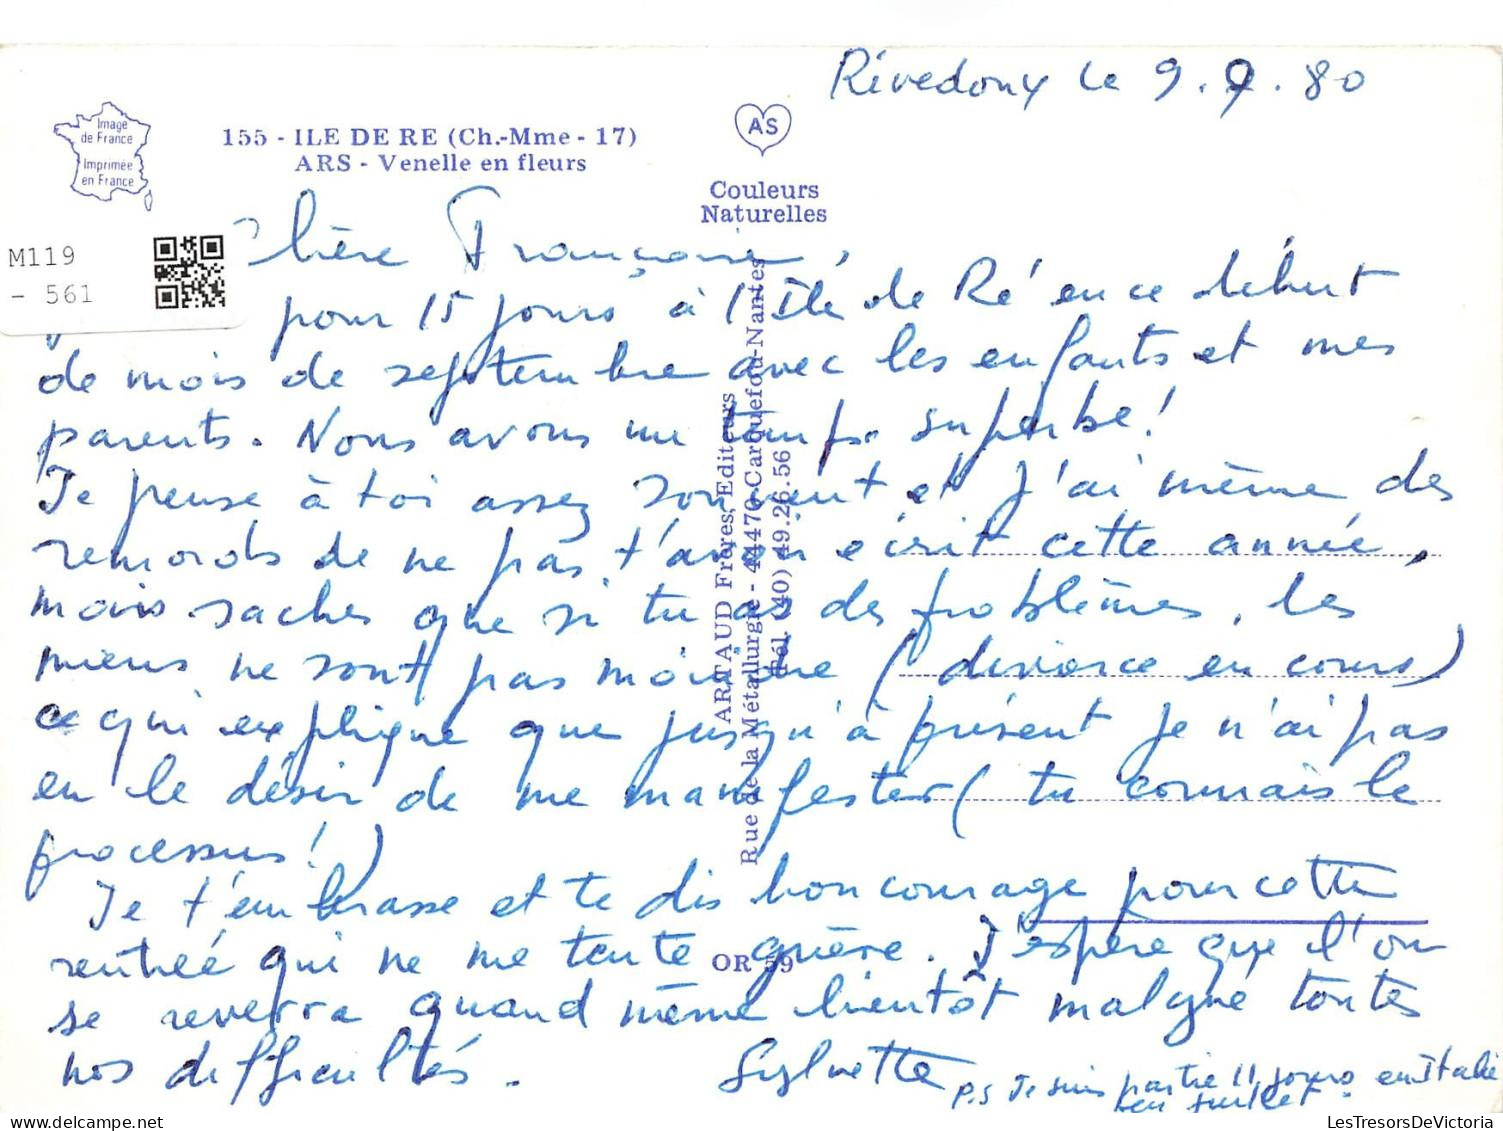 Rivedoux le 9.9.80
Image
de France
Imprimée
en France
155 - ILE DE RE (Ch.-Mme - 17)
ARS - Venelle en fleurs
AS
Couleurs
Naturelles
M119
- 561
Chère Françoise,
pour 15 jours à l'Ile de Ré en ce début
de mois de septembre avec les enfants et mes
parents. Nous avons un temps superbe !
Je pense à toi assez souvent et j'ai même des
remords de ne pas t'avoir écrit cette année,
mais saches que si tu as des problèmes, les
miens ne sont pas moindre (divorce en cours)
ce qui explique que jusqu'à présent je n'ai pas
eu le désir de me manifester (tu connais le
processus !)
Je t'embrasse et te dis bon courage pour cette
rentrée qui ne me tente guère. J'espère que l'on
se reverra quand même bientôt malgré toutes
nos difficultés.
Sylvette
P.S Je suis partie 11 jours en Italie
en juillet.
ARTAUD Frères, Editeurs
Rue de la Métallurgie - 44470 Carquefou-Nantes
Tél. (40) 49.26.56
OR 59
LesTresorsDeVictoria